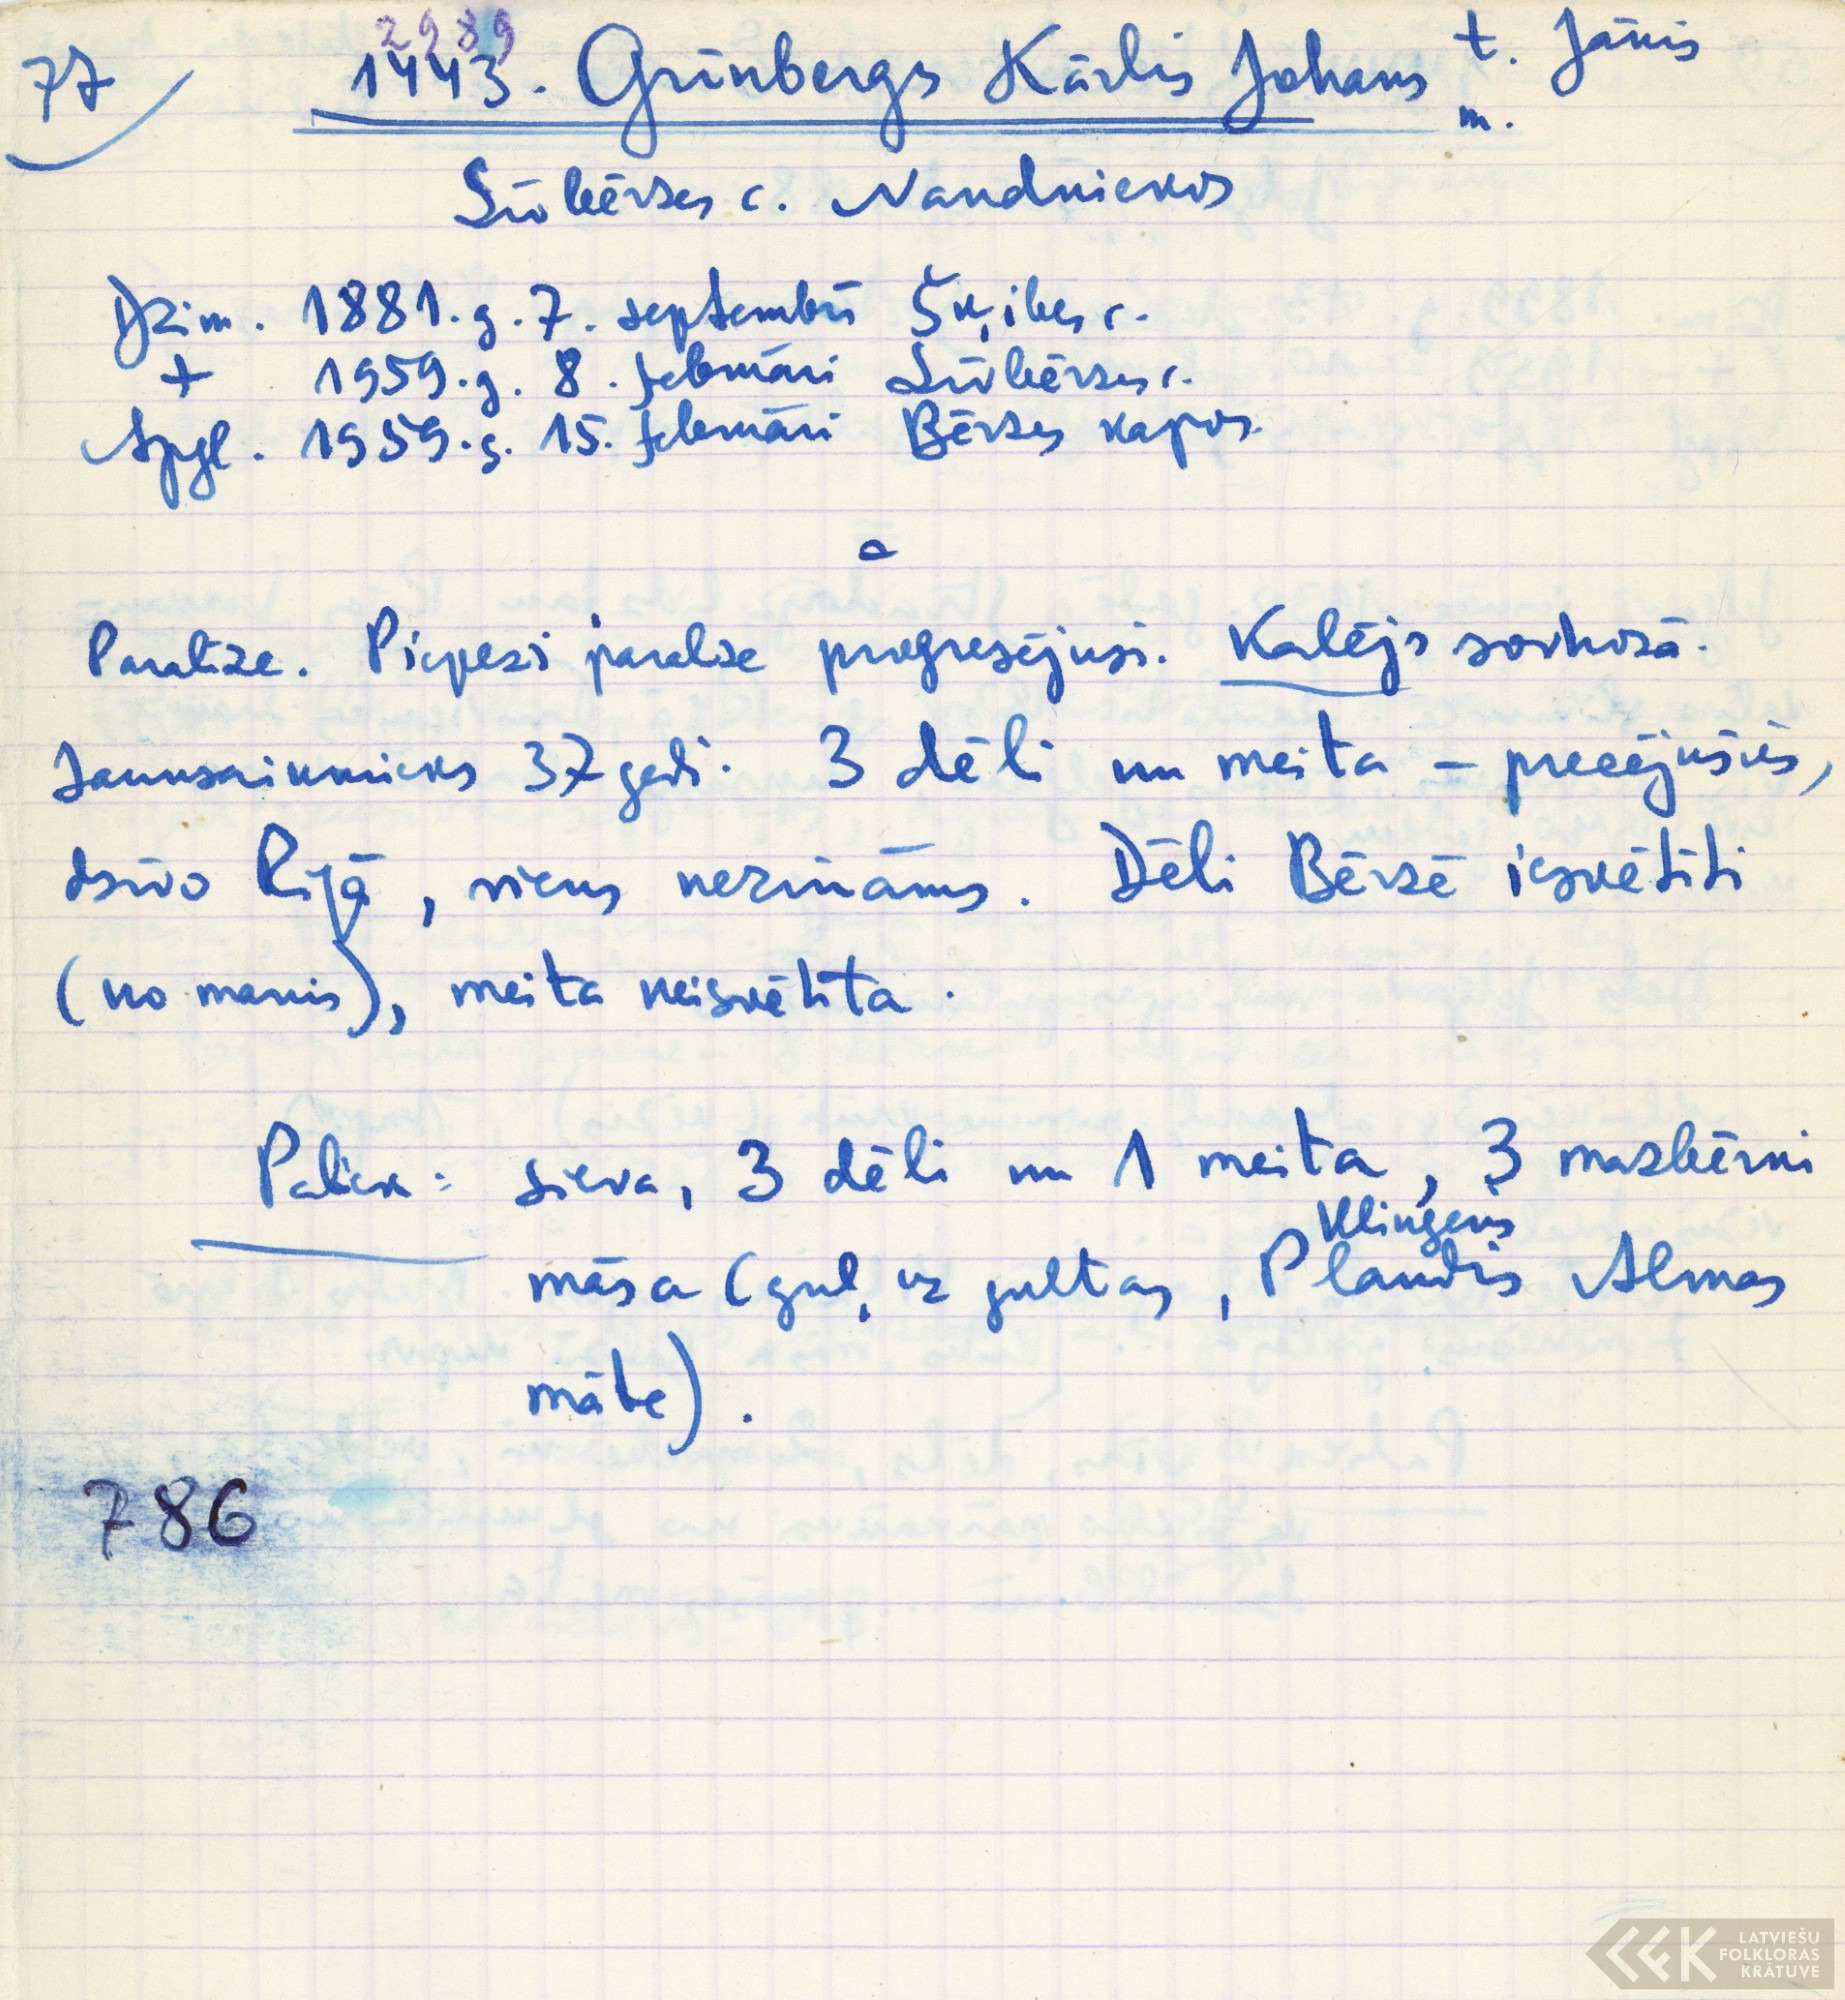 2989
77 1443. Grīnbergs Kārlis Johans t. Jānis
m.
Līvbērzes c. Naudniekos
Dzim. 1881. g. 7. septembrī Šķibes c.
+ 1959. g. 8. februārī Līvbērzes c.
Apgl. 1959. g. 15. februārī Bērzes kapos.
a
Paralīze. Piepeši paralīze progresējusi. Kalējs sovhozā.
Jaunsaimnieks 37 gadi. 3 dēli un meita – precējušies,
dzīvo Rīgā, viens nezināms. Dēli Bērzē iesvētīti
(no manis), meita neisvētīta.
Paliek: sieva, 3 dēli un 1 meita, 3 mazbērni
Klingens
māsa (guļ uz gultas, Plaudis Almas
māte).
786
LATVIEŠU
FOLKLORAS
KRĀTUVE